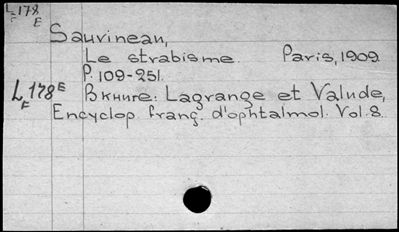 L 178 E
F
Sauvineau,
Le strabisme. Paris, 1909.
P. 109-251.
L 178 E
F
В книге: Lagrange et Valude,
Encyclop. franç. d'ophtalmol. Vol. 8.